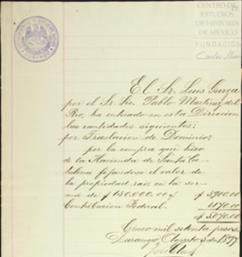 CENTRO DE
ESTUDIOS
DE HISTORIA
DE MEXICO
FUNDACIÓN
Carlos Slim
El Sr. Luis Gurza
por el Sr. Lic. Pablo Martinez del
Rio, ha enterado en esta Direccion
las cantidades siguientes:
por Traslacion de Dominio:
por la compra que hizo
de la Hacienda de Santa Ca-
talina fijandose el valor de
la propiedad raiz en la su-
ma de $ 130,000.00 $ 3900.00
Contribucion Federal. 1170.00
$ 5070.00
Cinco mil setenta pesos
Durango, Agosto de 1897